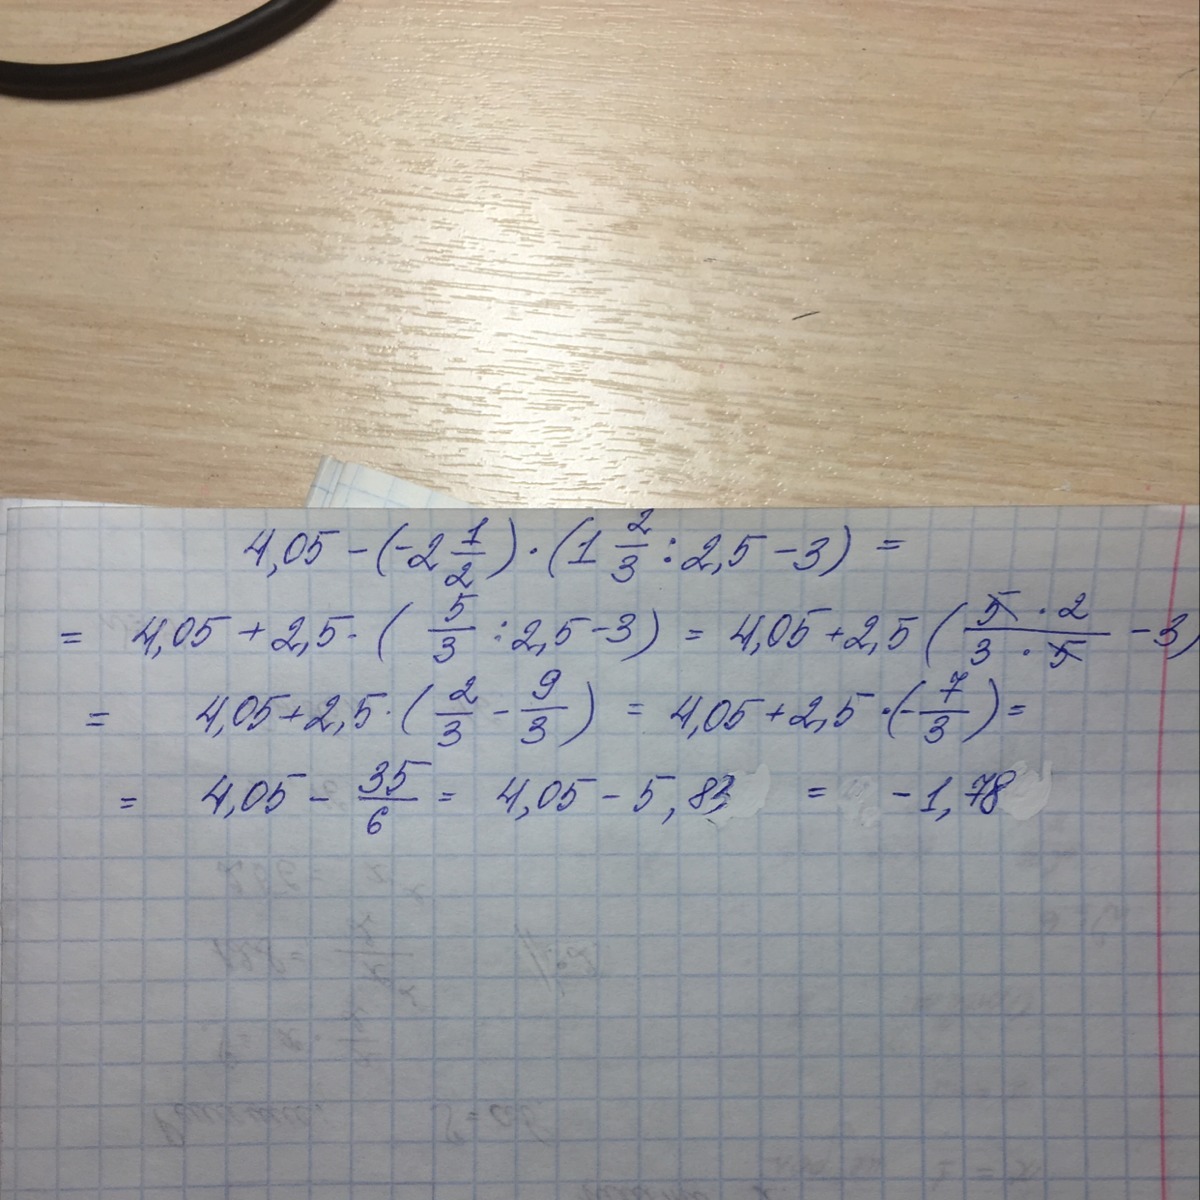 4,05 - (-2 1/2) · (1 2/3 : 2,5 - 3) =
= 4,05 + 2,5 · ( 5/3 : 2,5 - 3) = 4,05 + 2,5 ( 5 · 2 / 3 · 5 - 3)
= 4,05 + 2,5 · ( 2/3 - 9/3 ) = 4,05 + 2,5 · (- 7/3 ) =
= 4,05 - 35/6 = 4,05 - 5,83 = -1,78